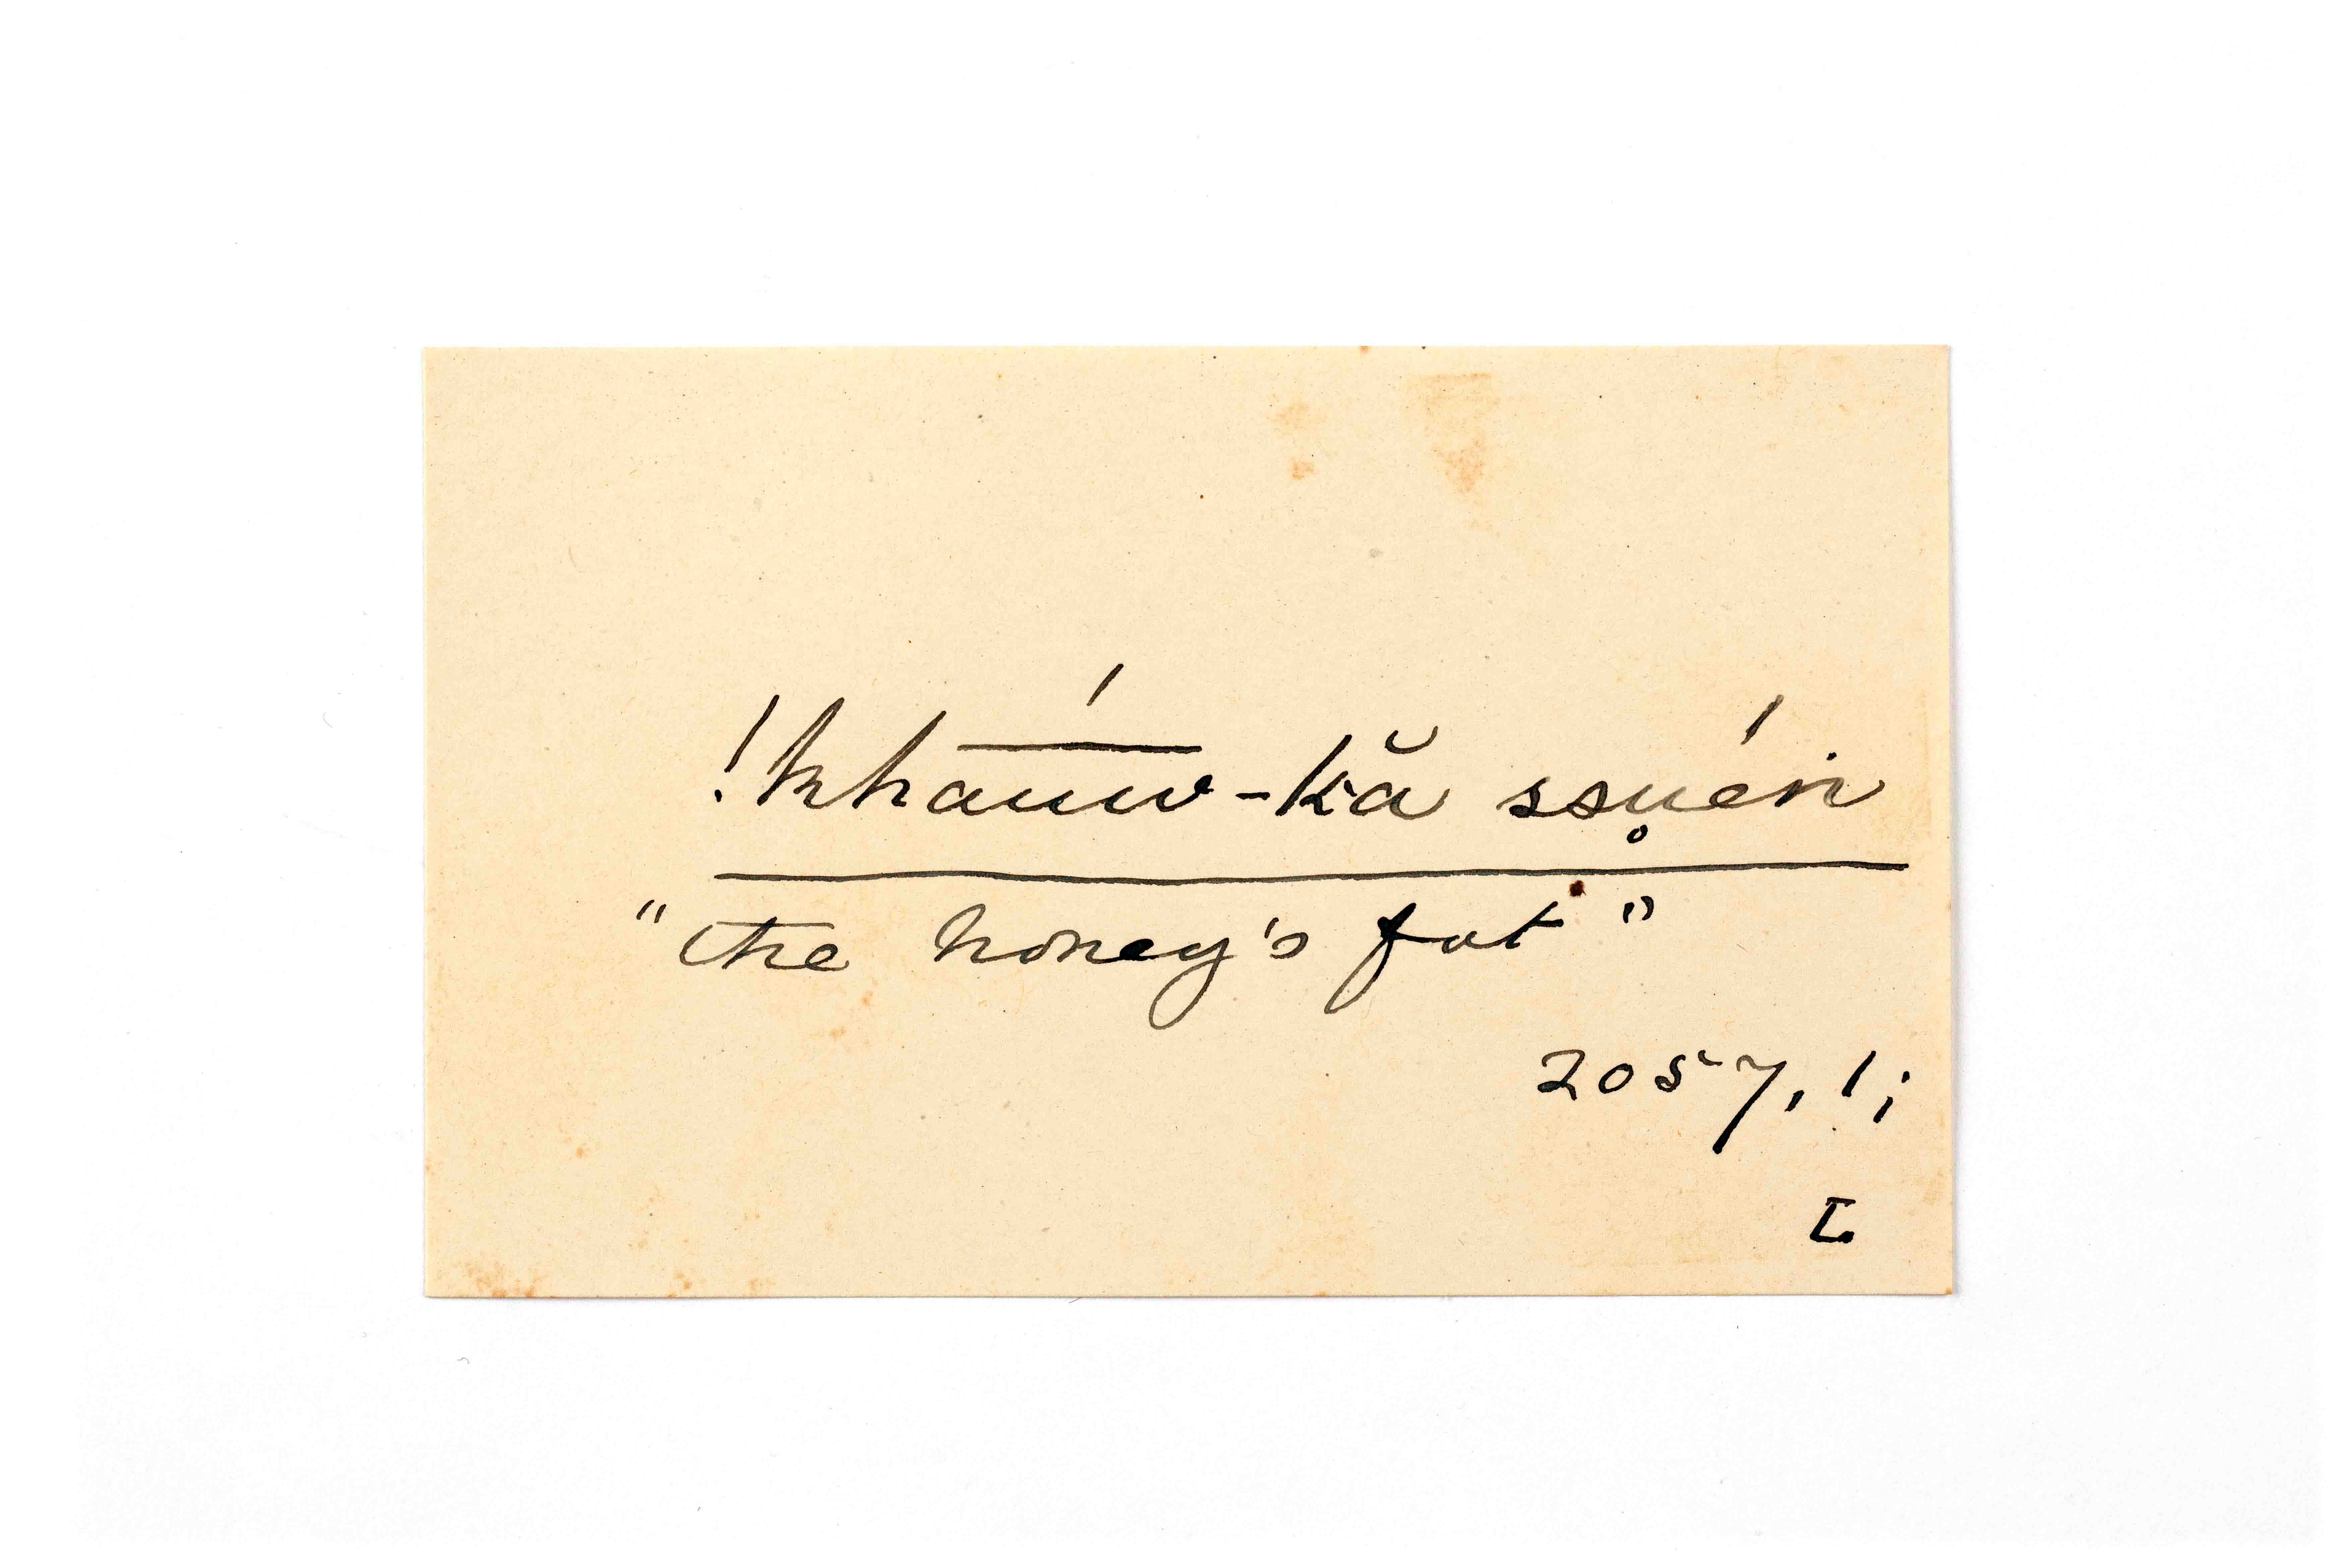 !kháu̅w̅-kă ssu̥én
"the honey's fat"
2057, 1;
L